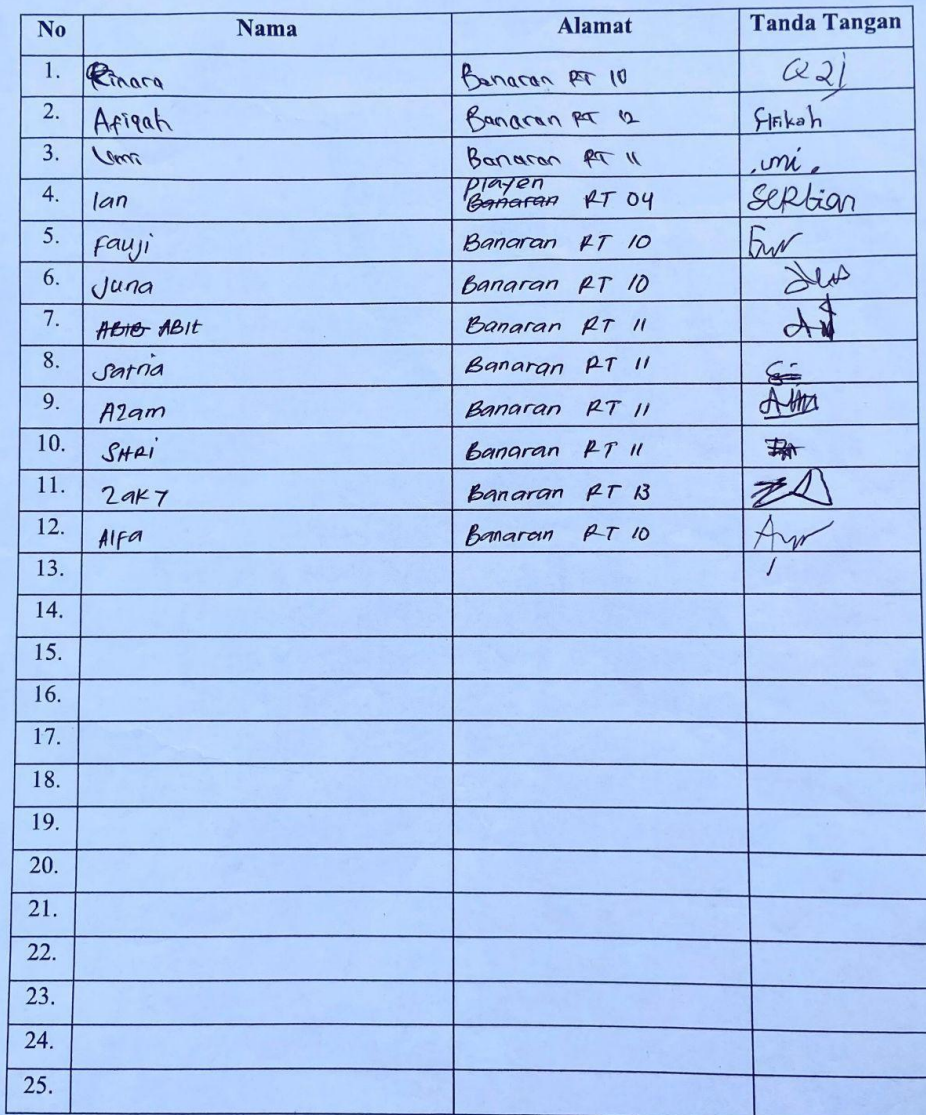 No Nama Alamat Tanda Tangan
1. Rinara Banaran RT 10
2. Afiqah Banaran RT 12 Afikah
3. Umi Banaran RT 11 .umi.
4. Ian Playen Banaran RT 04 SERtian
5. Fauji Banaran RT 10
6. Juna Banaran RT 10
7. ABIB ABIt Banaran RT 11
8. Satria Banaran RT 11
9. Azam Banaran RT 11
10. SHRi Banaran RT 11
11. Zaky Banaran RT 13
12. Alfa Banaran RT 10
13.
14.
15.
16.
17.
18.
19.
20.
21.
22.
23.
24.
25.